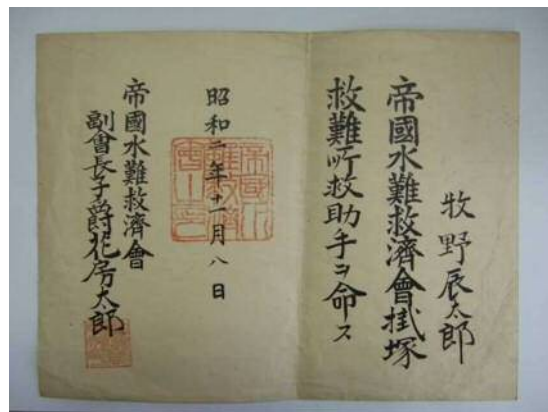 牧野辰太郎
帝國水難救濟會掛塚
救難所救助手ヲ命ス
昭和二年十一月八日
帝國水難救濟會
副會長子爵花房太郎